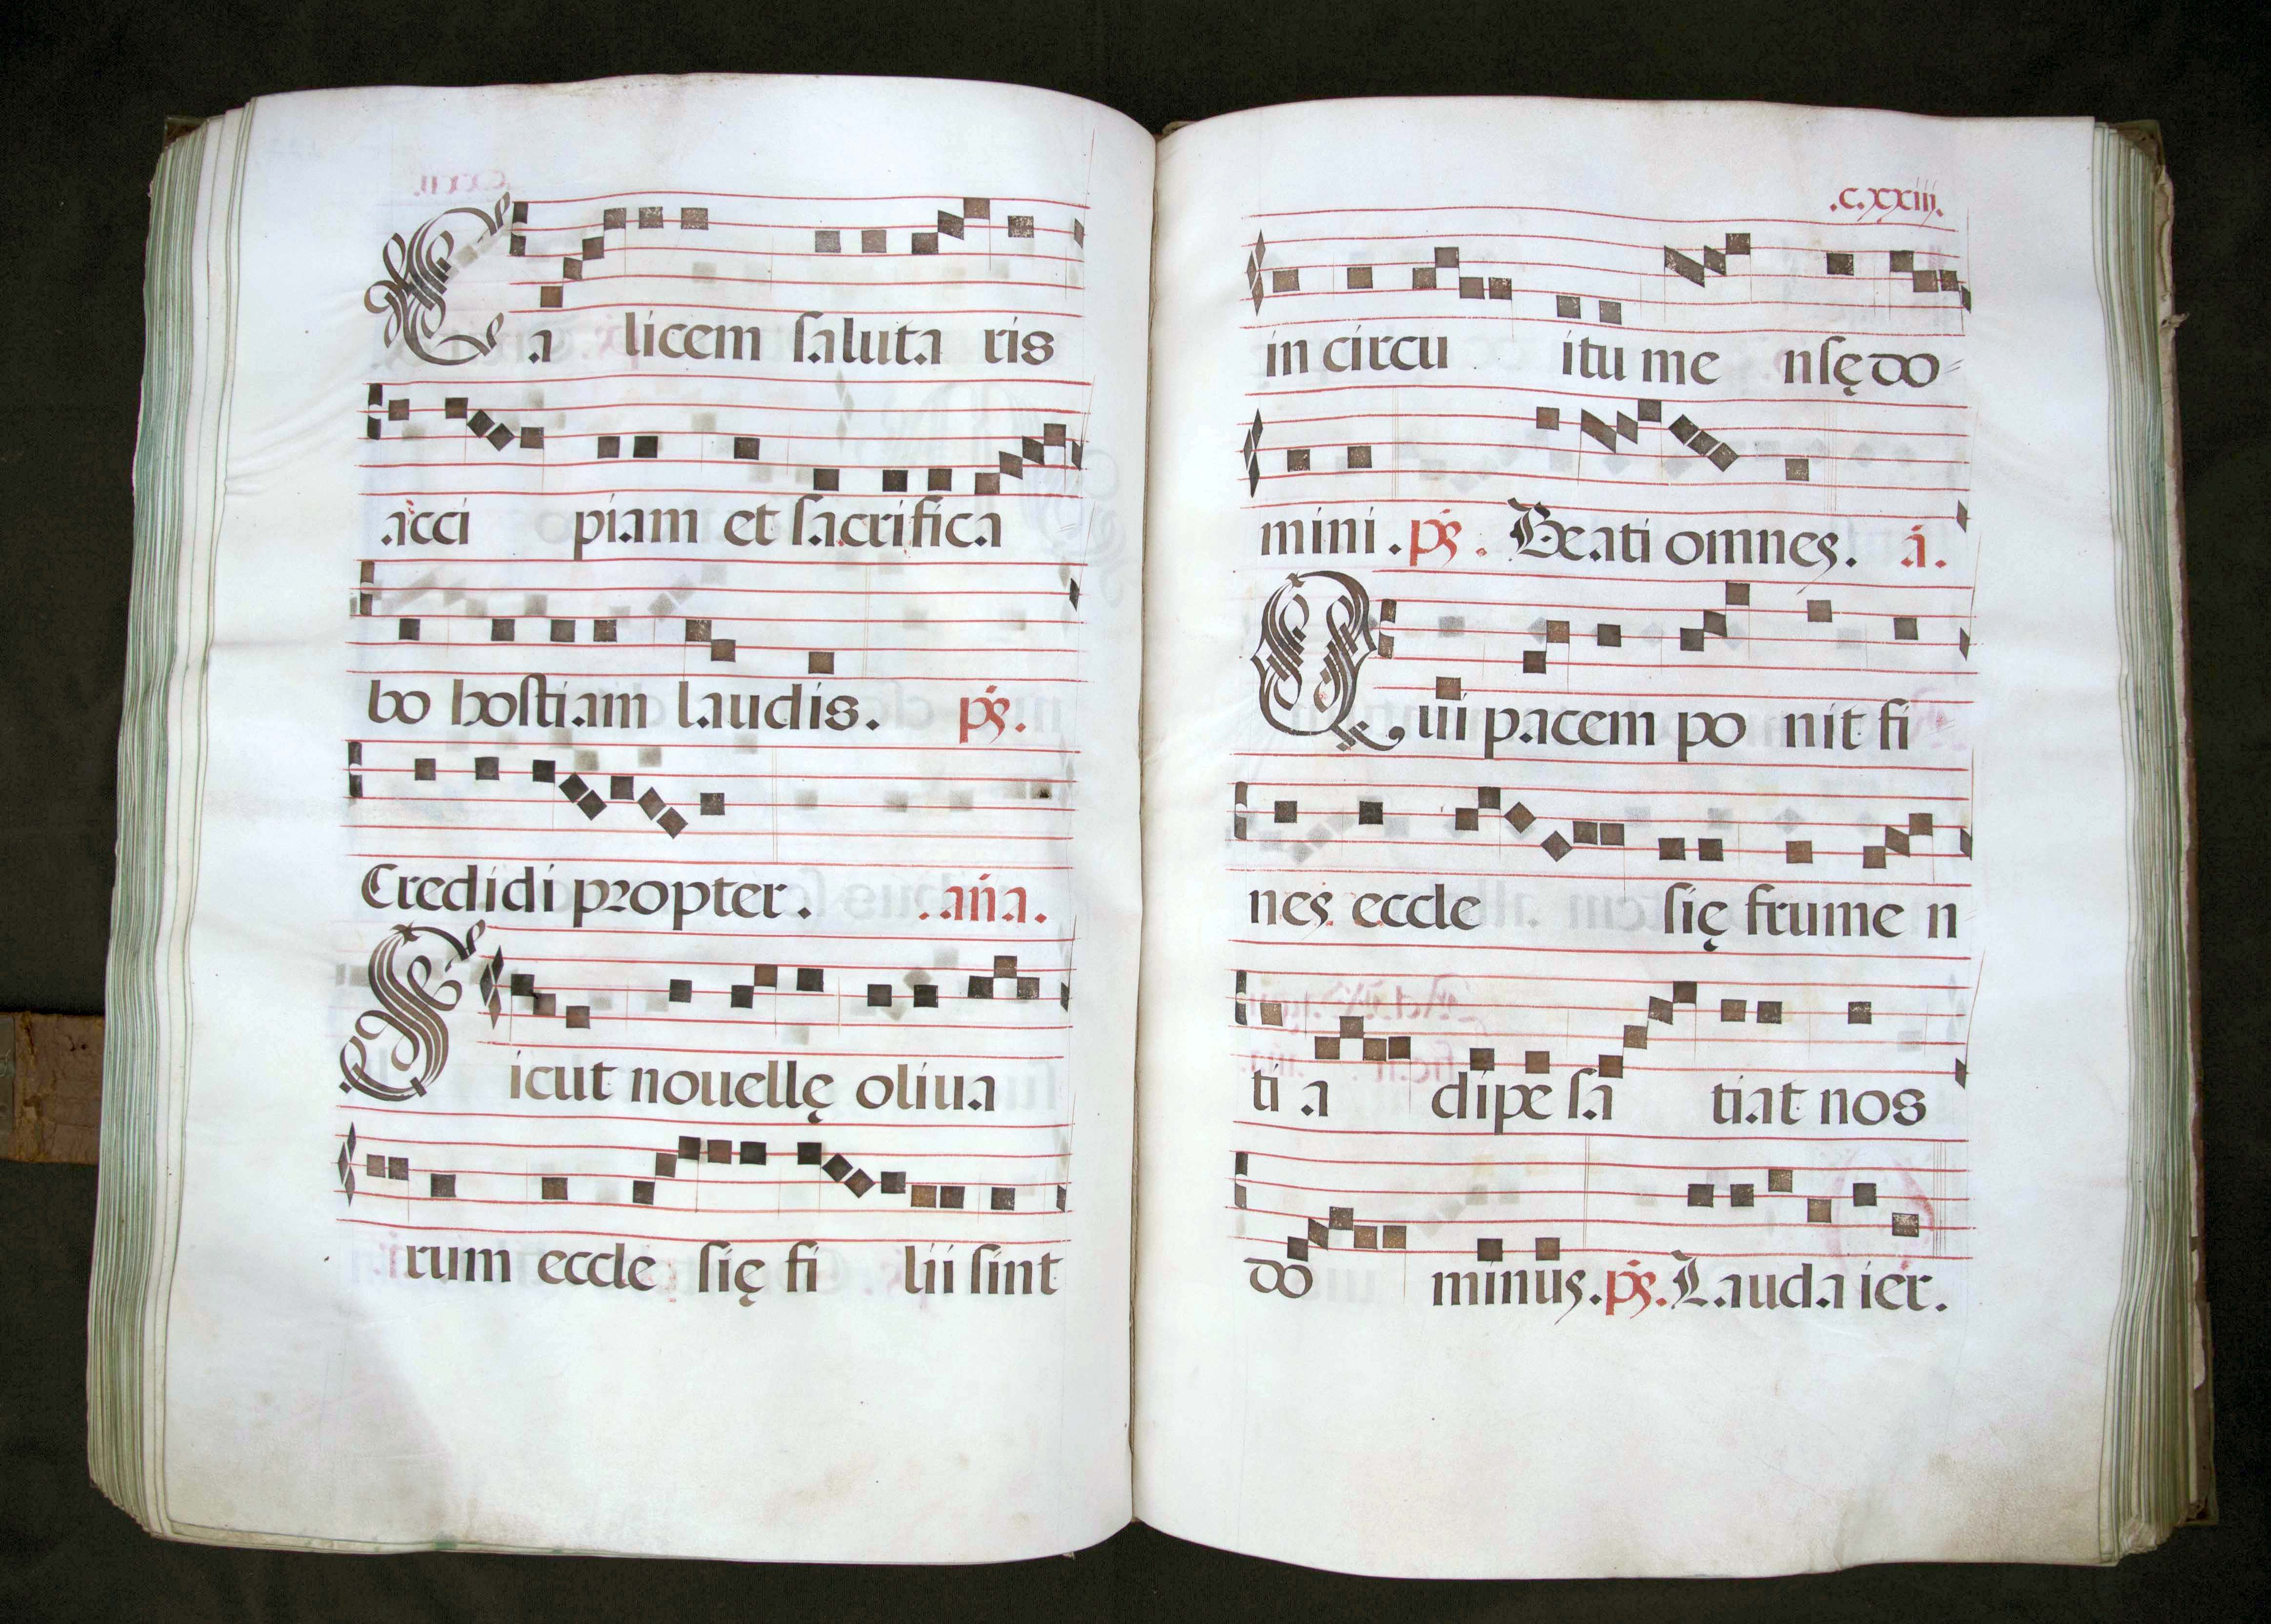 Ca licem saluta ris
acci piam et sacrifica
bo hostiam laudis. ps.
Credidi propter. .aña.
Sicut nouellę oliua
rum eccle się fi lii sint
.c.xxiij.
in circu itu me nsę do-
mini. ps. Beati omnes. á.
Qui pacem po nit fi
nes eccle się frume n
ti a dipe sa tiat nos
do minus. ps. Lauda ier.